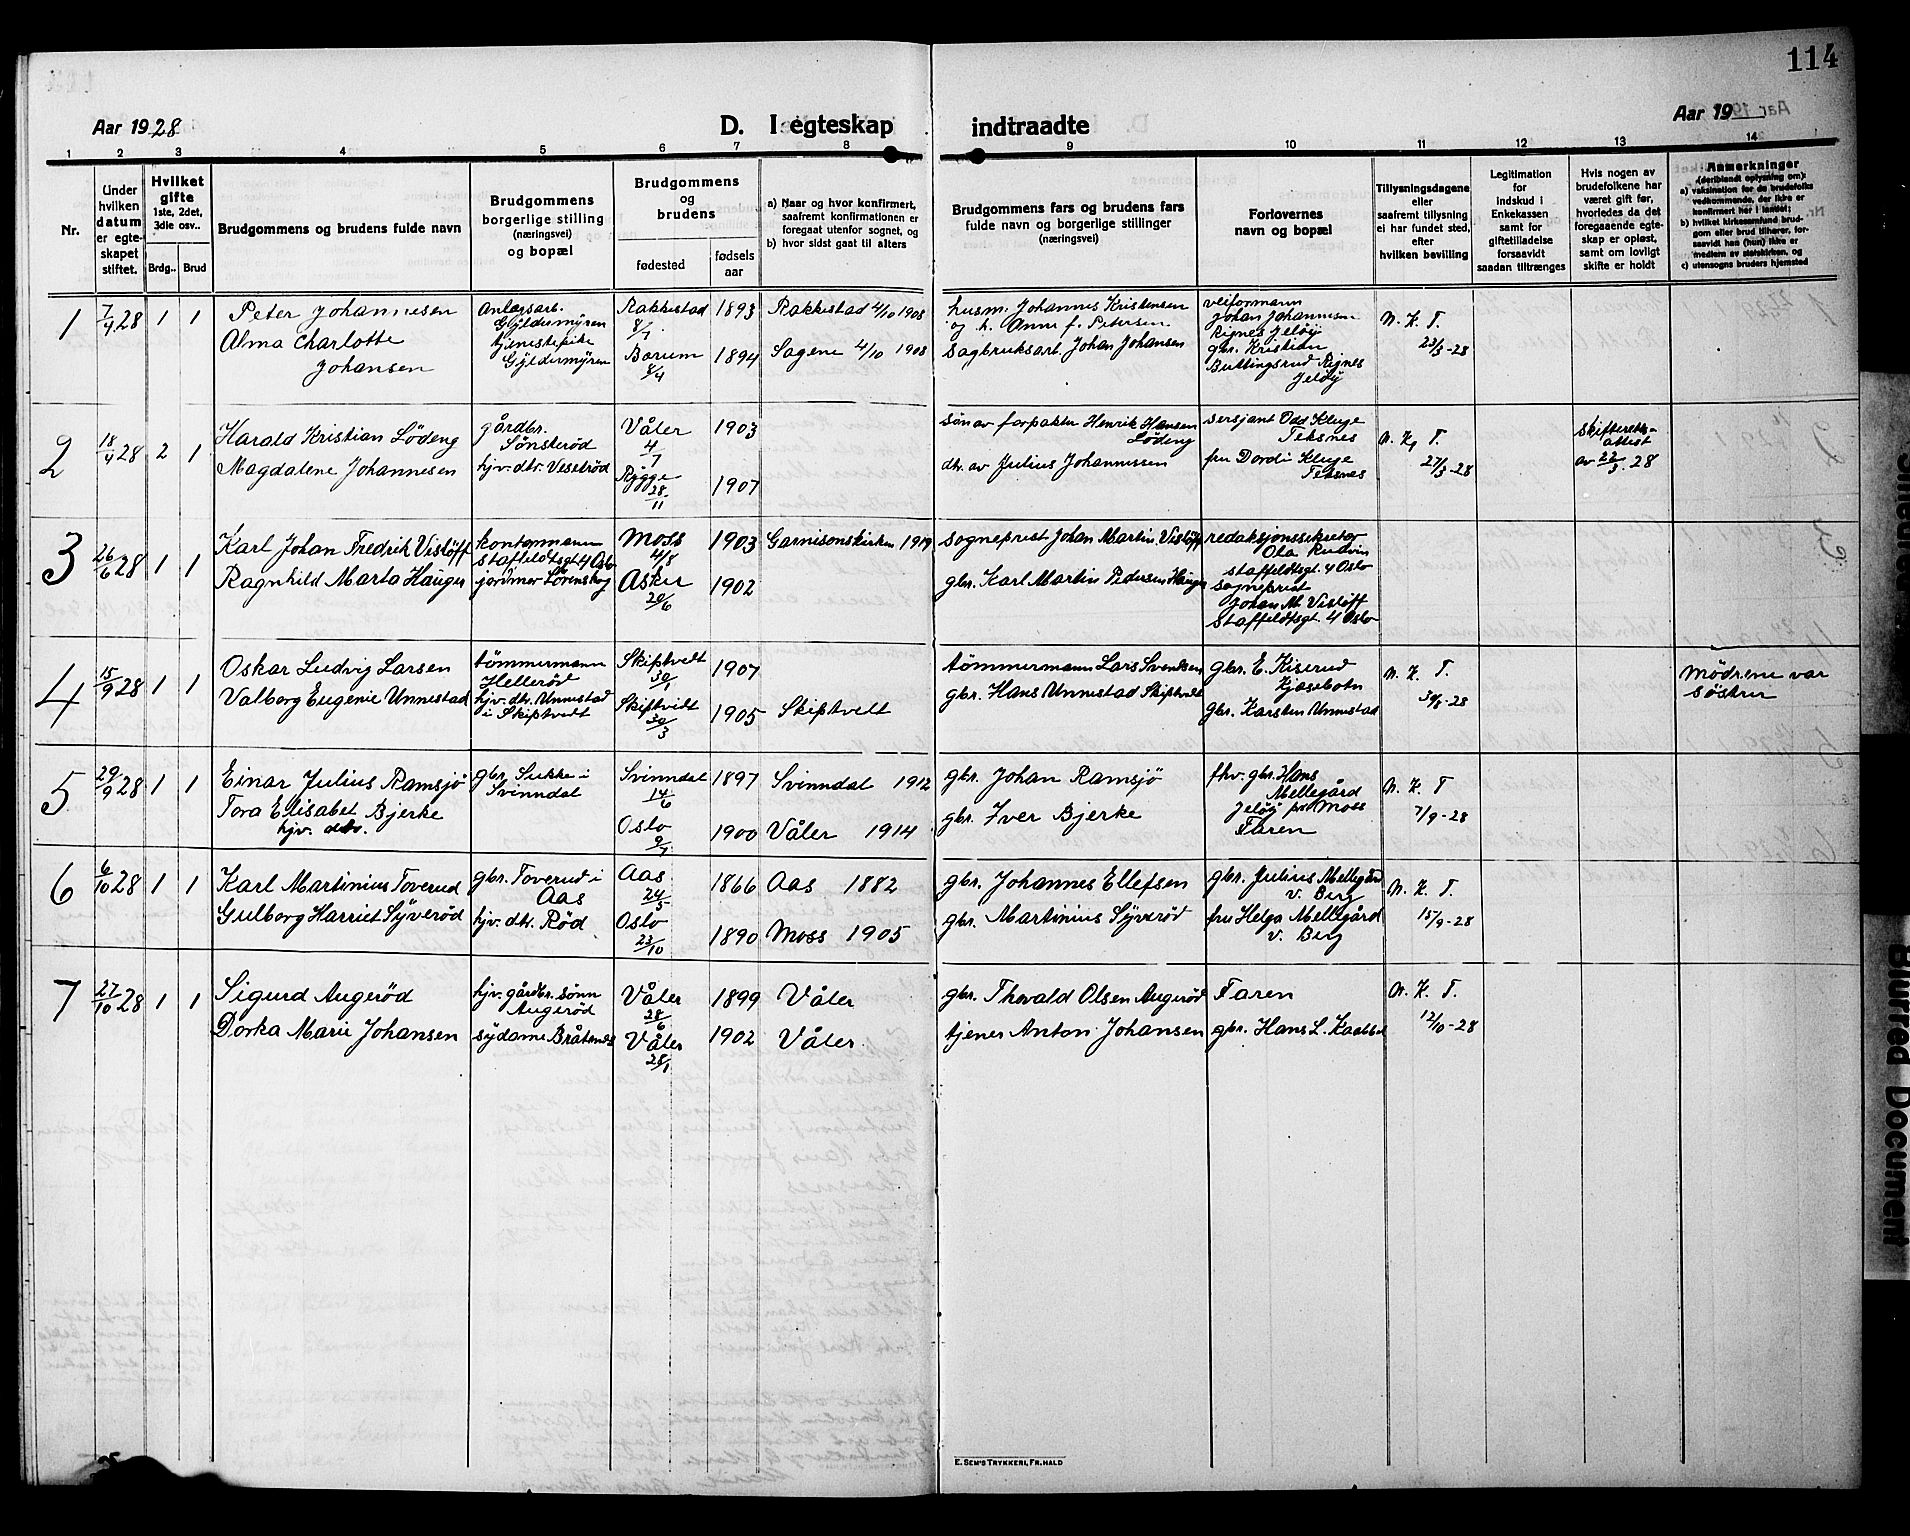 114
Aar 1928
D. I egteskap
indtraadte
Aar 19
1 2 3 4 5 6 7 8 9 10 11 12 13 14
Nr.
Under
hvilken
datum
er egte-
skapet
stiftet.
Hvilket
gifte
1ste, 2det,
3dje osv..
Brdg.. Brud
Brudgommens og brudens fulde navn
Brudgommens
borgerlige stilling
(næringsvei)
og bopæl
Brudgommens
og
brudens
fødested
fødsels
aar
a) Naar og hvor konfirmert,
saafremt konfirmationen er
foregaat utenfor sognet, og
b) hvor sidst gaat til alters
Brudgommens fars og brudens fars
fulde navn og borgerlige stillinger
(næringsvei)
Forlovernes
navn og bopæl
Tillysningsdagene
eller
saafremt tillysning
ei har fundet sted,
efter
hvilken bevilling
Legitimation
for
indskud i
Enkekassen
samt for
giftetilladelse
forsaavidt
saadan tiltrænges
Hvis nogen av
brudefolkene har
været gift før,
hvorledes da det
foregaaende egte-
skap er opløst,
samt om lovligt
skifte er holdt
Anmerkninger
(deriblandt oplysning om):
a) vaksination for de brudefolks
vedkommende, der ikke er
konfirmert her i landet;
b) hvilket kirkesamfund brud-
gom eller brud tilhører, for-
saavidt han (hun) ikke er
medlem av statskirken, og
c) utensogns bruders hjemsted
1 7/4 28 1 1
Peter Johannesen
Alma Charlotte
Johansen
Anlægsarb.
Gyldermyren
tjenestepike
Gyldermyren
Rakkestad 1893
8/1
Bærum 1894
8/4
Rakkestad 4/10 1908
Sagene 4/10 1908
husm. Johannes Kristensen
og h. Anne f. Petersen
Sagbruksarb. Johan Johansen
veiformann
Johan Johannesen
Rignes Jeløy
gbr. Kristian
Buttingsrud Rignes
Jeløy
N. K. T.
23/3-28
2 18/4 28 2 1
Harald Kristian Lödeng
Magdalene Johannesen
gårdbr.
Sönsteröd
hjv. dtr. Veseröd
Våler 1903
4/7
Rygge 1907
28/11
sön av forpakter Henrik Hansen
Lödeng
dtr. av Julius Johannessen
sersjant Odd Kluge
Teksnes
fru Dordi Kluge
Teksnes
N. K. T.
27/3-28
skifteretts-
attest
av 22/3 28
3 26/6 28 1 1
Karl Johan Fredrik Vislöff
Ragnhild Marta Hauger
kontormann
Staffeldtsgt 4 Oslo
jordmor Lörenskog
Moss 1903
4/8
Asker 1902
20/6
Garnisonskirken 1919
sogneprest Johan Martin Vislöff
gbr. Karl Martin Pedersen Hauger
redaksjonssekretær
Ola Rudvin
Staffeldtsgt. 4 Oslo
sogneprest
Johan M. Vislöff
Staffeldtsgt. 4 Oslo
4 15/9 28 1 1
Oskar Ludvig Larsen
Valborg Eugenie Unnestad
tömmermann
Helleröd
hjv. dtr. Unnestad
i Skiptvedt
Skiptvedt 1907
30/1
Skiptvedt 1905
30/3
Skiptvedt
tömmermann Lars Svendsen
gbr. Hans Unnestad Skiptvedt
gbr. E. Kiserud
Kjosebotn
gbr. Karsten Unnestad
N. K. T.
30/8-28
Mödrene var
söstrer
5 29/9 28 1 1
Einar Julius Ramsjö
Tora Elisabet Bjerke
hjv. dtr.
gbr. Sukke i
Svinndal
Svinndal 1897
14/6
Oslo 1900
9/7
Svinndal 1912
Våler 1914
gbr. Johan Ramsjö
gbr. Iver Bjerke
fhv. gbr. Hans
Mellegård
Jeløy pr. Moss
Faren
N. K. T
7/9-28
6 6/10 28 1 1
Karl Martinius Toverud
Gulborg Harriet Syveröd
gbr. Toverud i
Aas
hjv. dtr. Röd
Aas 1866
24/5
Oslo 1890
23/10
Aas 1882
Moss 1905
gbr. Johannes Ellefsen
gbr. Martinius Syveröd
gbr. Julius Mellegård
v. Berg
fru Helga Mellegård
v. Berg
N. K. T.
15/9-28
7 27/10 28 1 1
Sigurd Augeröd
Dorka Marie Johansen
hjv. gårdbr. sönn
Augeröd
sydame Bråtenes
Våler 1899
28/6
Våler 1902
28/1
Våler
Våler
gbr. Thorvald Olsen Augeröd
tjener Anton Johansen
Faren
gbr. Hans L.
N. K. T.
12/10-28
E. SEM'S TRYKKERI, FR.HALD
Blurred Document